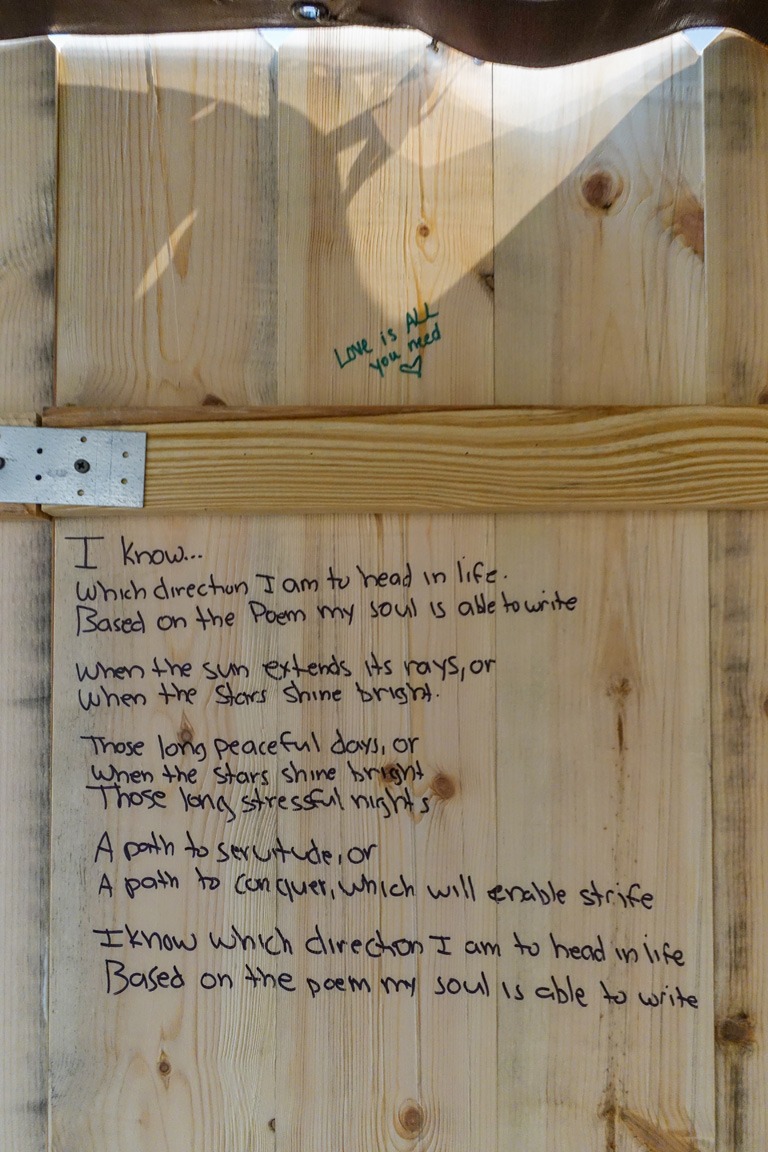 Love is ALL
you need
I know...
Which direction I am to head in life.
Based on the Poem my soul is able to write
When the sun extends its rays, or
When the Stars shine bright.
Those long peaceful days, or
When the stars shine bright
Those long stressful nights
A path to servitude, or
A path to conquer, which will enable strife
I know which direction I am to head in life
Based on the poem my soul is able to write